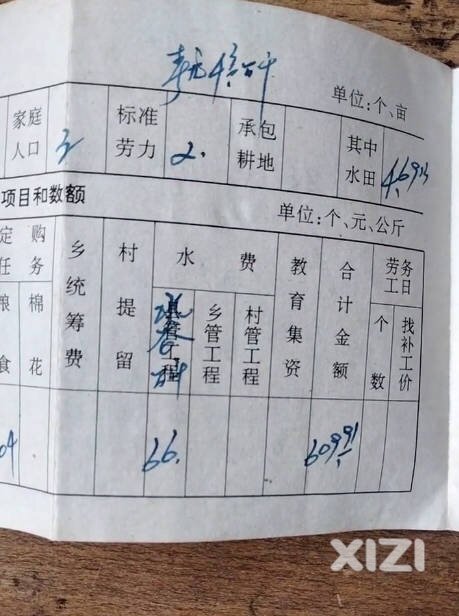 单位:个、亩
家庭人口 3 标准劳力 2. 承包耕地 其中水田 4.69
项目和数额
单位:个、元、公斤
定购任务 乡统筹费 村提留 水费 教育集资 合计金额 劳务工日
粮食 棉花 县管工程 乡管工程 村管工程 个数 找补工价
04 66. 609.91
XIZI